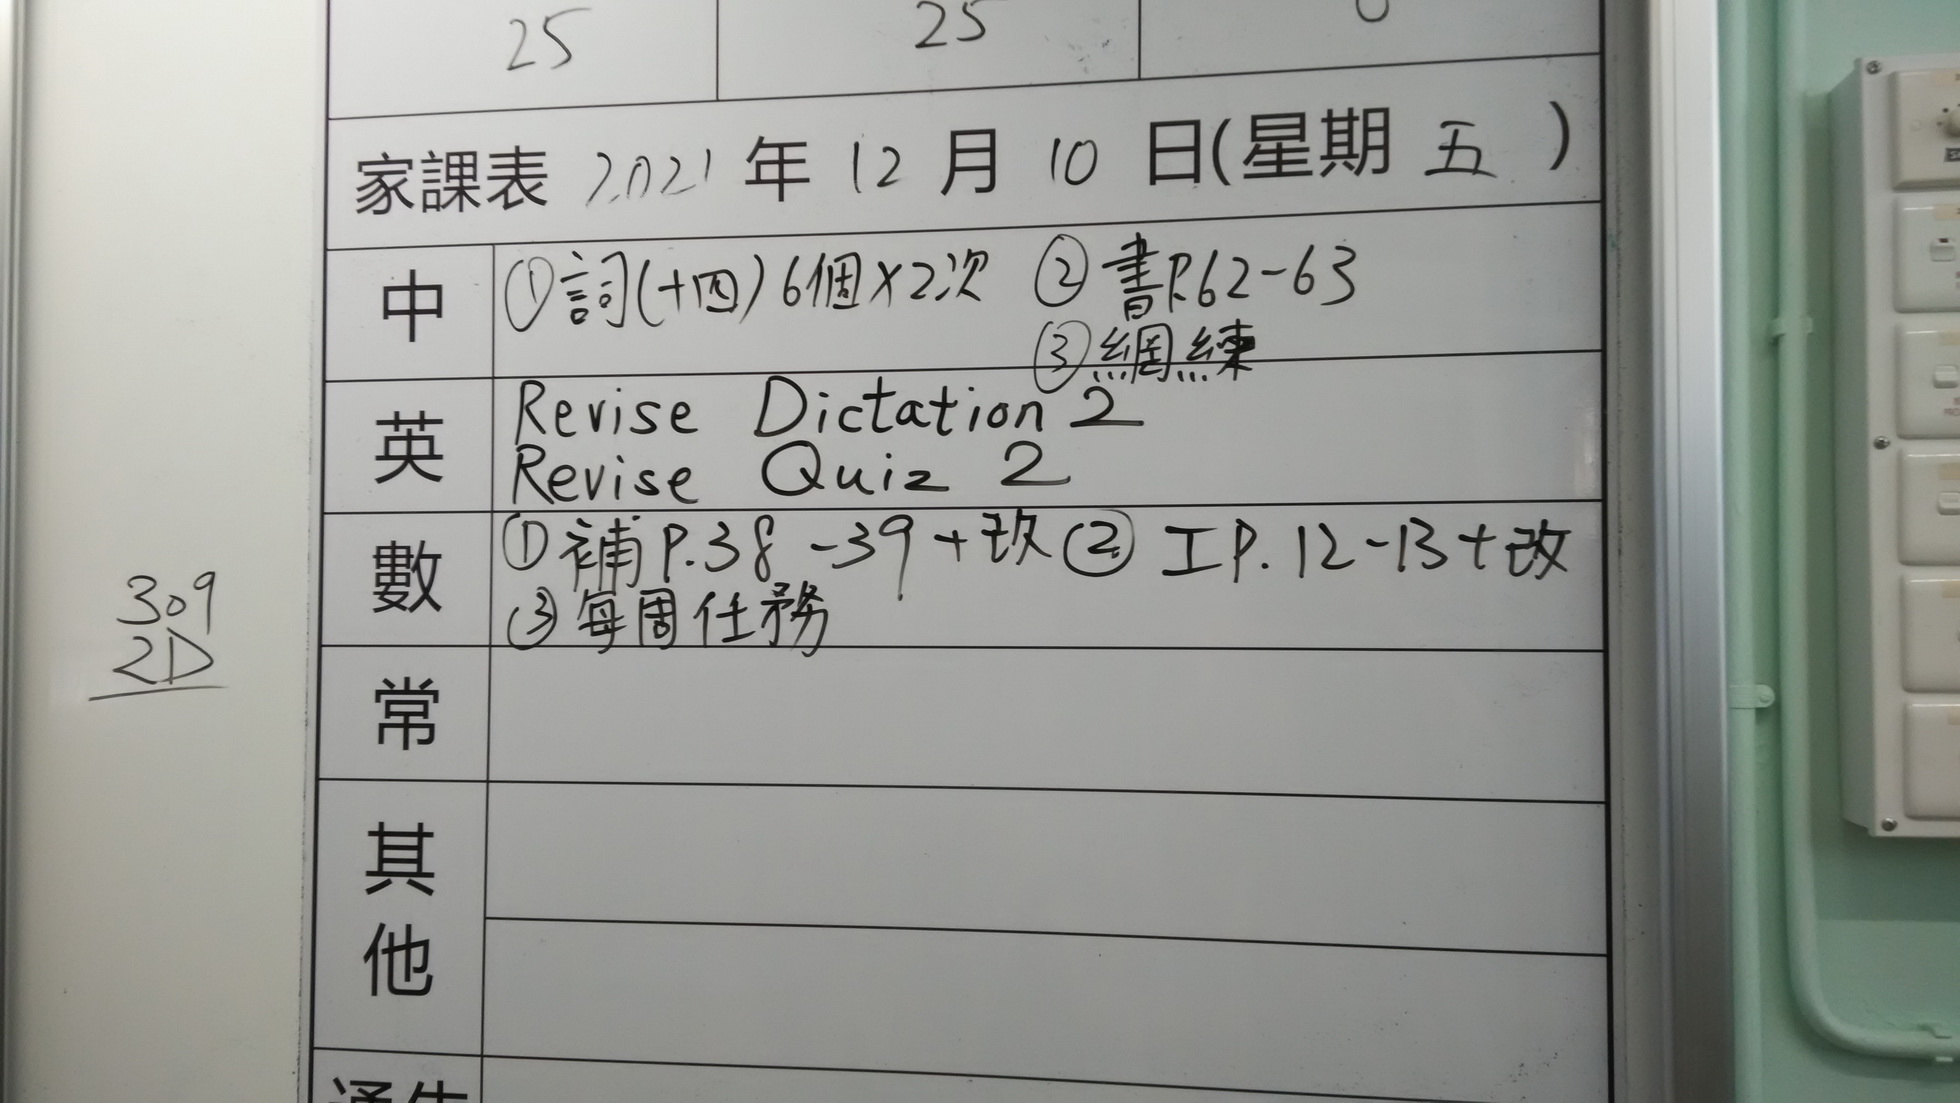 25 25 0
家課表 2021 年 12 月 10 日(星期 五 )
中 ①詞(十四)6個×2次 ②書P.62-63
③網練
英 Revise Dictation 2
Revise Quiz 2
數 ①補P.38-39+改 ②工P.12-13+改
③每周任務
常
其他
309
2D